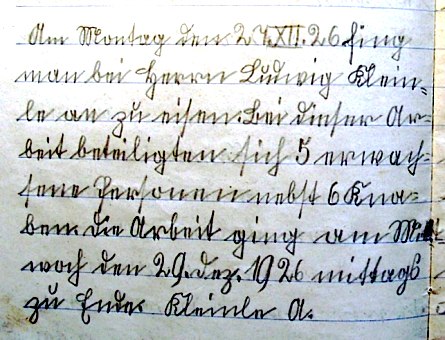 Am Montag den 27.XII.26 fing
man bei Herrn Ludwig Klein-
le an zu eisen. Bei dieser Ar-
beit beteiligten sich 5 erwach-
sene Personen nebst 6 Kna-
ben. die Arbeit ging am Mitt
woch den 29. dez. 1926 mittags
zu Ende. Kleinle A.